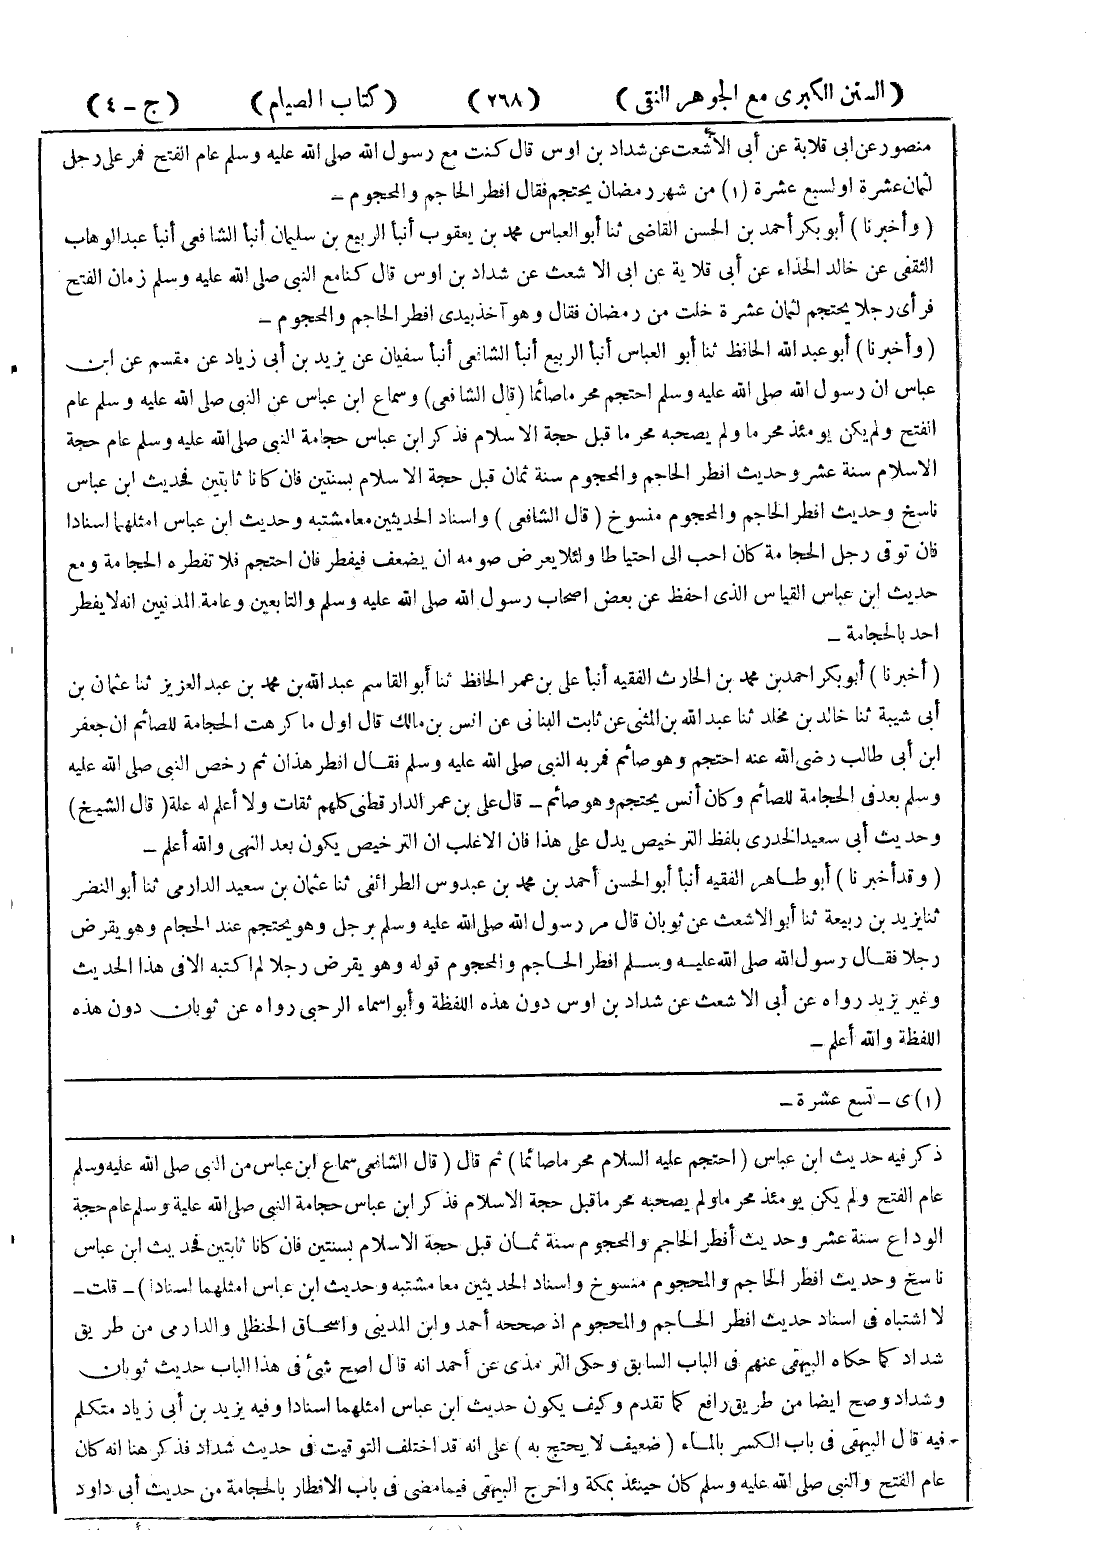 (السنن الكبرى مع الجوهر النقى) (٢٦٨) (كتاب الصيام) (ج - ٤)
منصور عن ابى قلابة عن أبى الأشعت عن شداد بن اوس قال كنت مع رسول الله صلى الله عليه وسلم عام الفتح فمر على رجل
لثمان عشرة او لسبع عشرة (١) من شهر رمضان يحتجم فقال افطر الحاجم والمحجوم -
(وأخبرنا) أبو بكر أحمد بن الحسن القاضى ثنا أبو العباس محمد بن يعقوب أنبأ الربيع بن سليمان أنبأ الشافعى أنبأ عبدالوهاب
الثقفى عن خالد الحذاء عن أبى قلابة عن ابى الاشعث عن شداد بن اوس قال كنا مع النبى صلى الله عليه وسلم زمان الفتح
فرأى رجلا يحتجم لثمان عشرة خلت من رمضان فقال وهو آخذ بيدى افطر الحاجم والمحجوم -
(وأخبرنا) أبو عبد الله الحافظ ثنا أبو العباس أنبأ الربيع أنبأ الشافعى أنبأ سفيان عن يزيد بن أبى زياد عن مقسم عن ابن
عباس ان رسول الله صلى الله عليه وسلم احتجم محرما صائما (قال الشافعى) وسماع ابن عباس عن النبى صلى الله عليه وسلم عام
الفتح ولم يكن يومئذ محرما ولم يصحبه محرما قبل حجة الاسلام فذكر ابن عباس حجامة النبى صلى الله عليه وسلم عام حجة
الاسلام سنة عشر وحديث افطر الحاجم والمحجوم سنة ثمان قبل حجة الاسلام بسنتين فان كانا ثابتين فحديث ابن عباس
ناسخ وحديث افطر الحاجم والمحجوم منسوخ (قال الشافعى) واسناد الحديثين معا مشتبه وحديث ابن عباس امثلهما اسنادا
فان توقى رجل الحجامة كان احب الى احتياطا ولئلا يعرض صومه ان يضعف فيفطر فان احتجم فلا تفطره الحجامة ومع
حديث ابن عباس القياس الذى احفظ عن بعض اصحاب رسول الله صلى الله عليه وسلم والتابعين وعامة المدنيين انه لا يفطر
احد بالحجامة -
(أخبرنا) أبو بكر احمد بن محمد بن الحارث الفقيه أنبأ على بن عمر الحافظ ثنا أبو القاسم عبد الله بن محمد بن عبد العزيز ثنا عثمان بن
أبى شيبة ثنا خالد بن مخلد ثنا عبد الله بن المثنى عن ثابت البنانى عن انس بن مالك قال اول ما كرهت الحجامة للصائم ان جعفر
ابن أبى طالب رضى الله عنه احتجم وهو صائم فمر به النبى صلى الله عليه وسلم فقال افطر هذان ثم رخص النبى صلى الله عليه
وسلم بعد فى الحجامة للصائم وكان أنس يحتجم وهو صائم - قال على بن عمر الدارقطنى كلهم ثقات ولا أعلم له علة (قال الشيخ)
وحديث أبى سعيد الخدرى بلفظ الترخيص يدل على هذا فان الاغلب ان الترخيص يكون بعد النهى والله أعلم -
(وقد أخبرنا) أبو طاهر الفقيه أنبأ أبو الحسن أحمد بن محمد بن عبدوس الطرائفى ثنا عثمان بن سعيد الدارمى ثنا أبو النضر
ثنا يزيد بن ربيعة ثنا أبو الاشعث عن ثوبان قال مر رسول الله صلى الله عليه وسلم برجل وهو يحتجم عند الحجام وهو يقرض
رجلا فقال رسول الله صلى الله عليه وسلم افطر الحاجم والمحجوم قوله وهو يقرض رجلا لم اكتبه الا فى هذا الحديث
وغير يزيد رواه عن أبى الاشعث عن شداد بن اوس دون هذه اللفظة وأبو اسماء الرحبى رواه عن ثوبان دون هذه
اللفظة والله أعلم -
(١) ى - تسع عشرة -
ذكر فيه حديث ابن عباس (احتجم عليه السلام محرما صائما) ثم قال (قال الشافعى سماع ابن عباس من النبى صلى الله عليه وسلم
عام الفتح ولم يكن يومئذ محرما ولم يصحبه محرما قبل حجة الاسلام فذكر ابن عباس حجامة النبى صلى الله علية وسلم عام حجة
الوداع سنة عشر وحديث أفطر الحاجم والمحجوم سنة ثمان قبل حجة الاسلام بسنتين فان كانا ثابتين فحديث ابن عباس
ناسخ وحديث افطر الحاجم والمحجوم منسوخ واسناد الحديثين معا مشتبه وحديث ابن عباس امثلهما اسنادا) - قلت -
لا اشتباه فى اسناد حديث افطر الحاجم والمحجوم اذ صححه أحمد وابن المدينى واسحاق الحنظلى والدارمى من طريق
شداد كما حكاه البيهقى عنهم فى الباب السابق وحكى الترمذى عن أحمد انه قال اصح شىء فى هذا الباب حديث ثوبان
وشداد وصح ايضا من طريق رافع كما تقدم وكيف يكون حديث ابن عباس امثلهما اسنادا وفيه يزيد بن أبى زياد متكلم
فيه قال البيهقى فى باب الكسر بالماء (ضعيف لا يحتج به) على انه قد اختلف التوقيت فى حديث شداد فذكر هنا انه كان
عام الفتح والنبى صلى الله عليه وسلم كان حينئذ بمكة واخرج البيهقى فيما مضى فى باب الافطار بالحجامة من حديث أبى داود